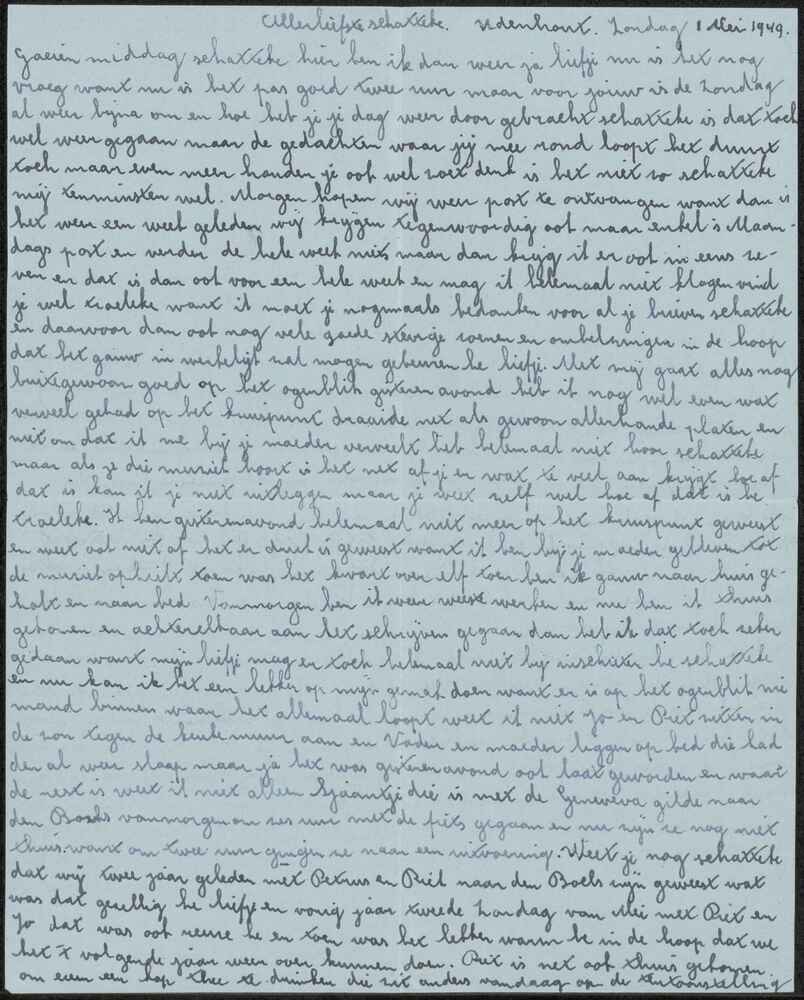 Allerliefste schatteke. Udenhout. Zondag 1 Mei 1949.
Goeien middag schatteke hier ben ik dan weer ja liefje nu is het nog
vroeg want nu is het pas goed twee uur maar voor jouw is de Zondag
al weer bijna om en hoe heb je je dag weer door gebracht schatteke is dat toch
wel weer gegaan maar de gedachten waar jij mee rond loopt het duurt
toch maar even meer houden je ook wel zoet denk is het niet zo schatteke
mij tenminsten wel. Morgen hopen wij weer post te ontvangen want dan is
het weer een week geleden wij krijgen tegenwoordig ook maar enkel 's Maan-
dags post en verder de hele week niets maar dan krijg ik er ook in eens ze-
ven en dat is dan ook voor een hele week en mag ik helemaal niet klagen vind
je wel troeleke want ik moet je nogmaals bedanken voor al je brieven schatteke
en daarvoor dan ook nog vele goede stevige zoenen en omhelzingen in de hoop
dat het gauw in werkelijk zal mogen gebeuren he liefje. Met mij gaat alles nog
buitegewoon goed op het ogenblik gisteren avond heb ik nog wel even wat
verveel gehad op het kruispunt draaide net als gewoon allerhande platen en
niet om dat ik me bij je moeder verveelt heb helemaal niet hoor schatteke
maar als je die muziek hoort is het net af je er wat te veel aan krijgt hoe af
dat is kan ik je niet uitleggen maar je weet zelf wel hoe af dat is he
troeleke. Ik ben gisterenavond helemaal niet meer op het kruispunt geweest
en weet ook niet of het er druk is geweest want ik ben bij je moeder gebleven tot
de muziek ophielt toen was het kwart over elf toen ben ik gauw naar huis ge-
holt en naar bed. Vanmorgen ben ik weer weeste werken en nu ben ik thuis
gekomen en achterelkaar aan het schrijven gegaan dan heb ik dat toch zeker
gedaan want mijn liefje mag er toch helemaal niet bij inschieten he schatteke
en nu kan ik het een lekker op mijn gemak doen want er is op het ogenblik nie
mand binnen waar het allemaal loopt weet ik niet Jo en Piet zitten in
de zon tegen de keukemuur aan en Vader en moeder liggen op bed die had
den al weer slaap maar ja het was gisterenavond ook laat geworden en waar
de rest is weet ik niet alleen Sjaantje die is met de Geneveva gilde naar
den Bosch vanmorgen om zes uur met de fiets gegaan en nu zijn ze nog niet
thuis want om twee uur gingen ze naar een uitvoering. Weet je nog schatteke
dat wij twee jaar geleden met Petrus en Riet naar den Boels zijn geweest wat
was dat gezellig he liefje en vorig jaar tweede Zondag van Mei met Piet en
Jo dat was ook reuze he en toen was het lekker warm he in de hoop dat we
het 't volgende jaar weer over kunnen doen. Piet is net ook thuis gekomen
om even een kop thee te drinken die zit anders vandaag op de tentoonstelling